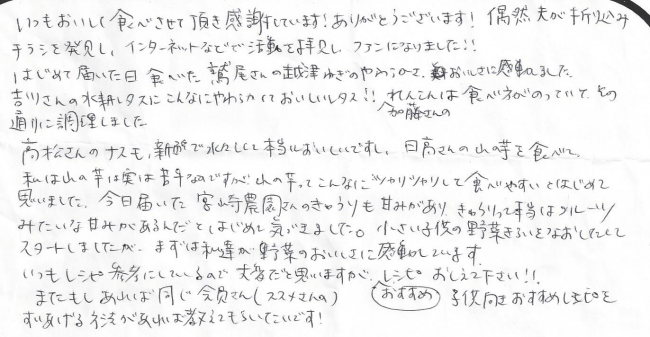 いつもおいしく食べさせて頂き感謝しています!ありがとうございます! 偶然夫が折り込み
チラシを発見し、インターネットなどで活動を拝見し ファンになりました!!
はじめて届いた日 食べた 鷲尾さんの越津ねぎのやわらかさ、おいしさに感動しました。
吉川さんの水耕レタスにこんなにやわらかくておいしいレタス!! 加藤さんのれんこんは食べ方がのっていて、その
通りに調理しました
高松さんのナスも、新鮮で水々しくて本当においしいですし、日高さんの山の芋を食べて、
私は山の芋は実は苦手なのですが 山の芋ってこんなにシャリシャリして食べやすいとはじめて
思いました。今日届いた 宮崎農園さんのきゅうりも 甘みがあり きゅうりって本当はフルーツ
みたいな甘みがあるんだとはじめて気づきました。小さい子供の野菜ぎらいをなおしたくて
スタートしましたが、まずは私達が野菜のおいしさに感動しています。
いつもレシピ参考にしているので 大変だと思いますが、レシピおしえて下さい!!
またもしあれば同じ会員さん(ススメさんの) おすすめ 子供向きおすすめレシピを
する方法があれば教えてもらいたいです!